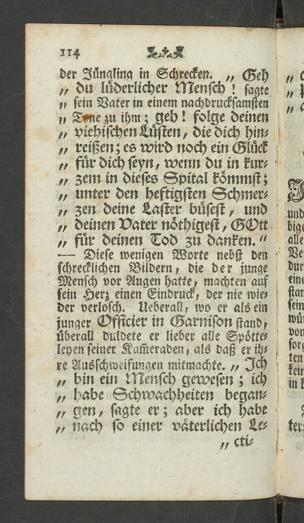 114
der Jüngling in Schrecken. „ Geh
„ du lüderlicher Mensch! sagte
„ sein Vater in einem nachdrucksamsten
„ Tone zu ihm; geh! folge deinen
„ viehischen Lüsten, die dich hin-
„ reißen; es wird noch ein Glück
„ für dich seyn, wenn du in kur-
„ zem in dieses Spital kömmst;
„ unter den heftigsten Schmer-
„ zen deine Laster büsest, und
„ deinen Vater nöthigest, GOtt
„ für deinen Tod zu danken. “
— Diese wenigen Worte nebst den
schrecklichen Bildern, die der junge
Mensch vor Augen hatte, machten auf
sein Herz einen Eindruck, der nie wie-
der verlosch. Ueberall, wo er als ein
junger Officier in Garnison stand,
überall duldete er lieber alle Spötte-
leyen seiner Kameraden, als daß er ih-
re Ausschweifungen mitmachte. „ Ich
„ bin ein Mensch gewesen; ich
„ habe Schwachheiten began-
„ gen, sagte er; aber ich habe
„ nach so einer väterlichen Le-
„ cti-